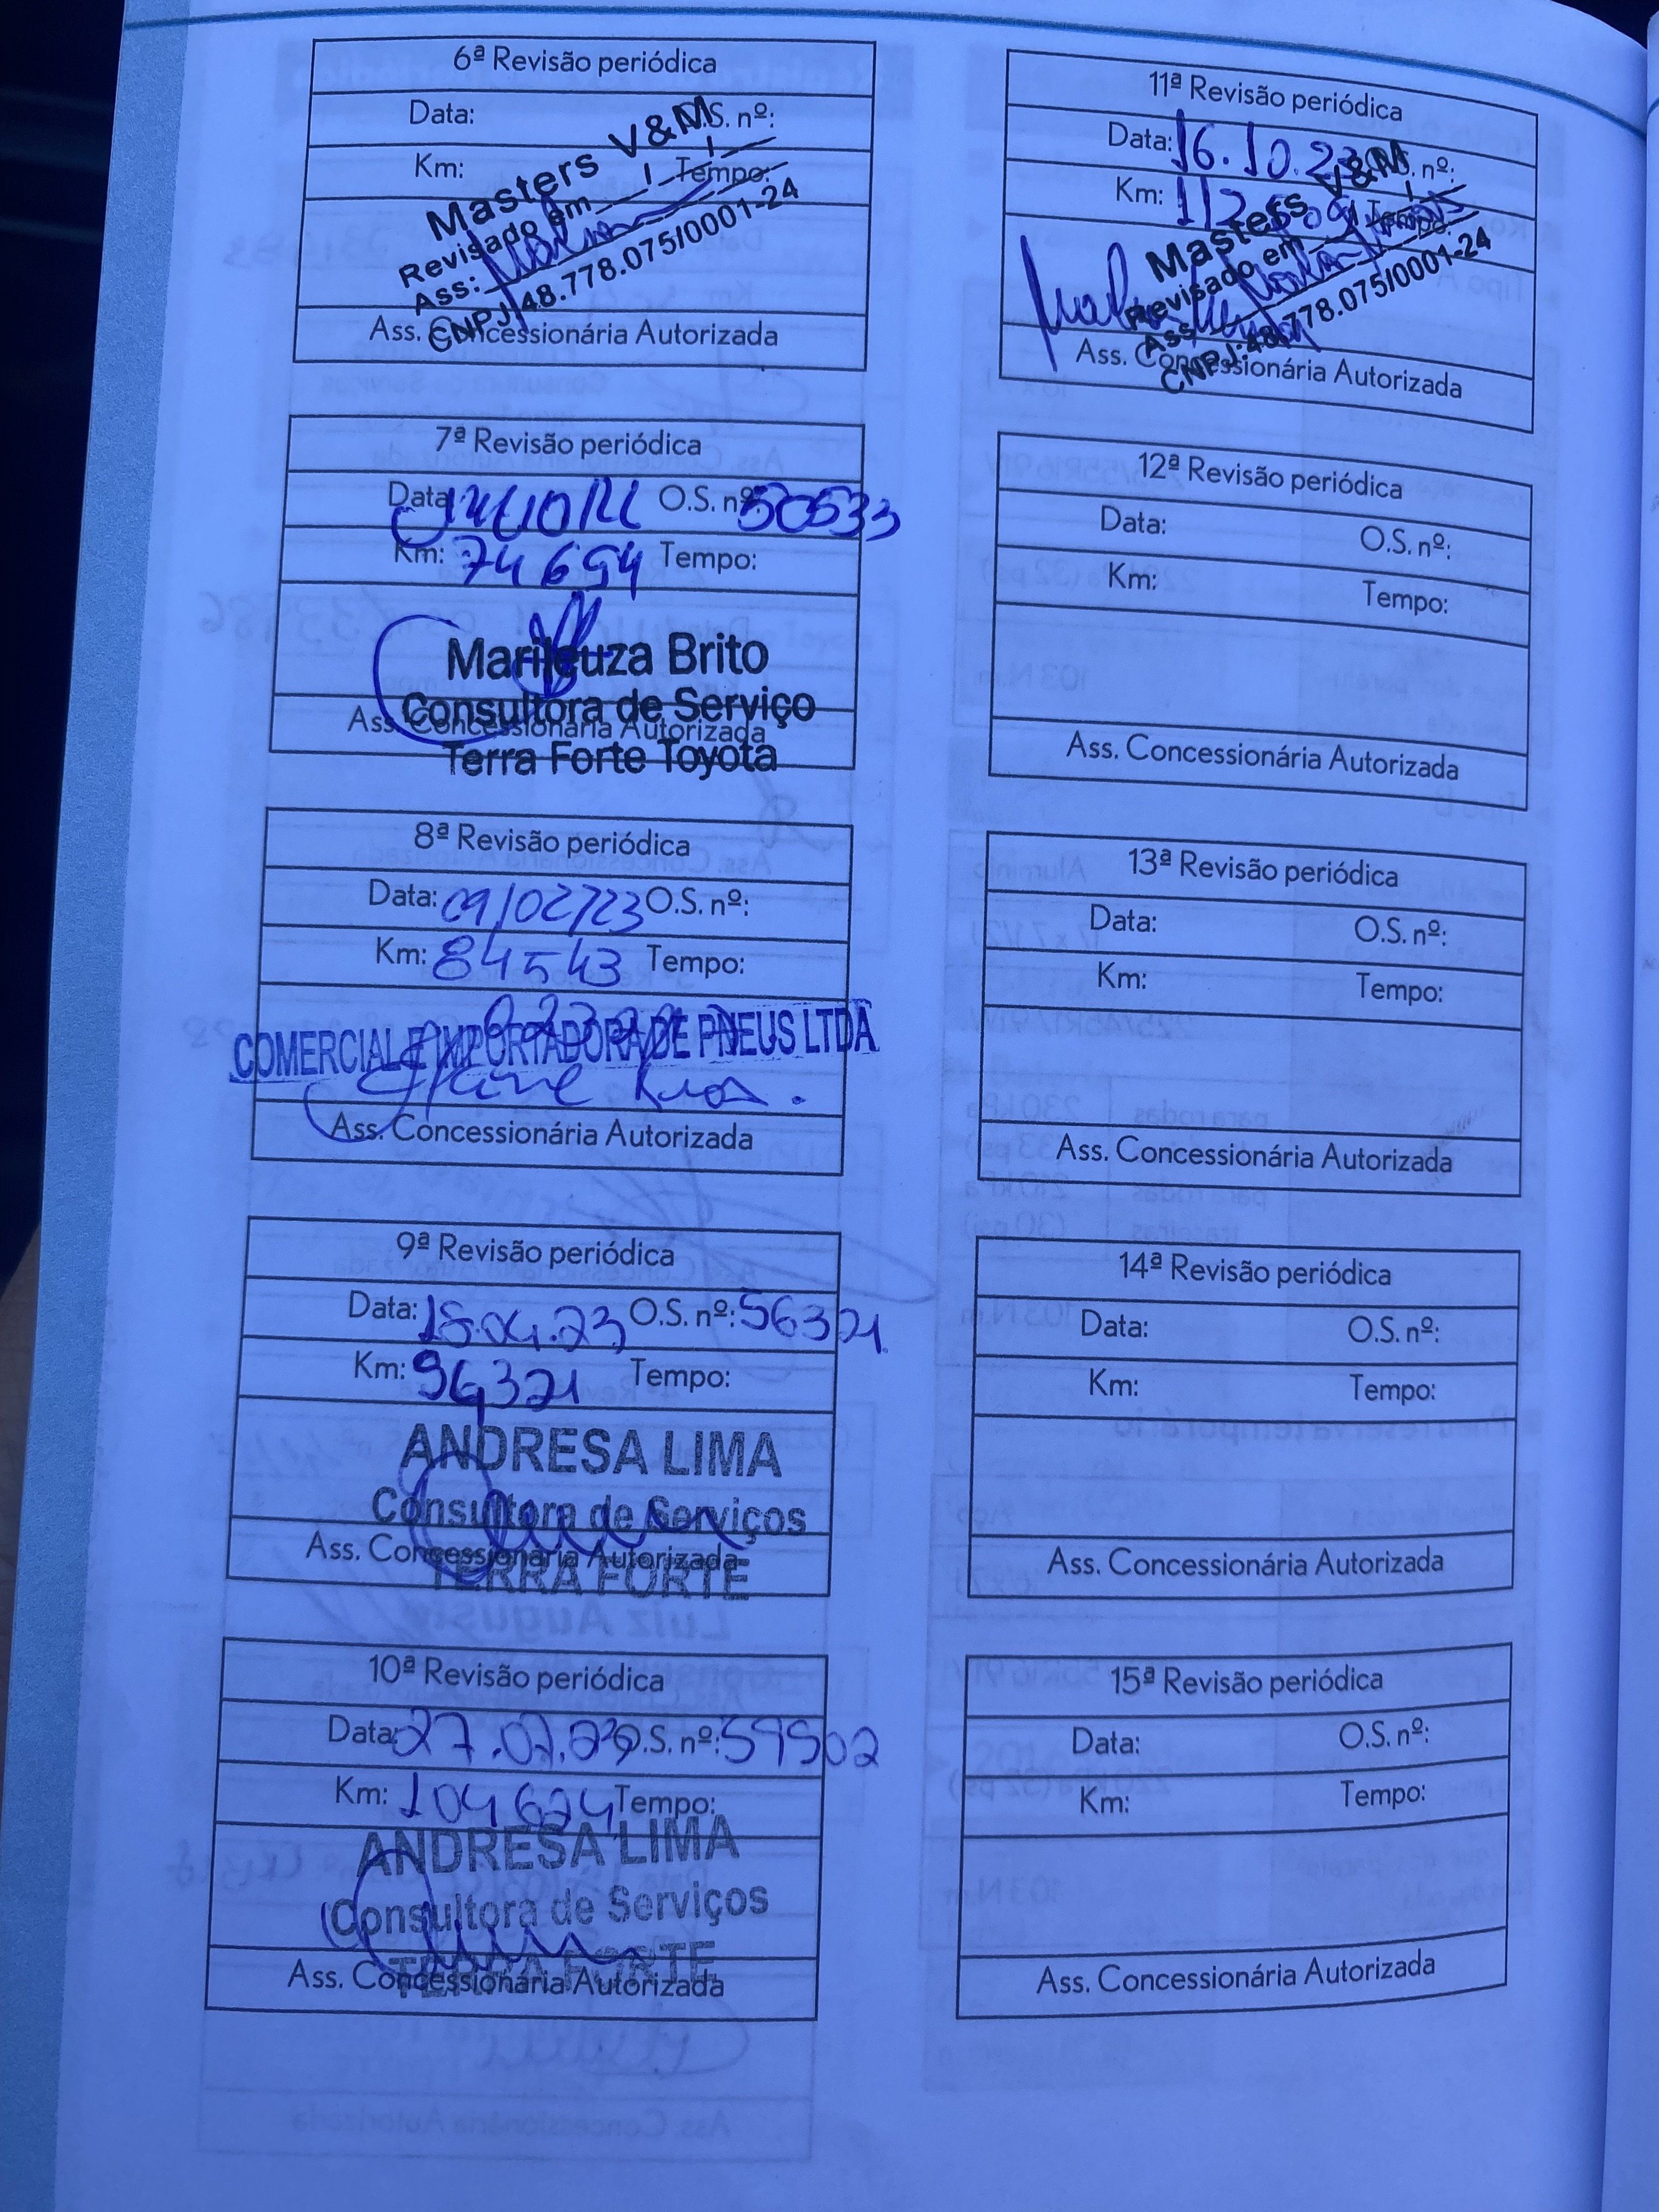 6ª Revisão periódica
Data: O.S. nº:
Km: Tempo:
Masters V&M
Revisado em / /
Ass:
CNPJ:48.778.075/0001-24
Ass. Concessionária Autorizada
7ª Revisão periódica
Data: O.S. nº: 50533
Km: 74694 Tempo:
Marileuza Brito
Consultora de Serviço
Ass. Concessionária Autorizada
Terra Forte Toyota
8ª Revisão periódica
Data: 09/02/23 O.S. nº:
Km: 84543 Tempo:
COMERCIAL E IMPORTADORA DE PNEUS LTDA
Ass. Concessionária Autorizada
9ª Revisão periódica
Data: 18.04.23 O.S. nº: 56321
Km: 94321 Tempo:
ANDRESA LIMA
Consultora de Serviços
Ass. Concessionária Autorizada
TERRA FORTE
10ª Revisão periódica
Data: 27.07.23 O.S. nº: 59502
Km: 104624 Tempo:
ANDRESA LIMA
Consultora de Serviços
TERRA FORTE
Ass. Concessionária Autorizada
11ª Revisão periódica
Data: 16.10.23 O.S. nº:
Km: Tempo:
Masters V&M
Revisado em / /
Ass:
CNPJ:48.778.075/0001-24
Ass. Concessionária Autorizada
12ª Revisão periódica
Data: O.S. nº:
Km: Tempo:
Ass. Concessionária Autorizada
13ª Revisão periódica
Data: O.S. nº:
Km: Tempo:
Ass. Concessionária Autorizada
14ª Revisão periódica
Data: O.S. nº:
Km: Tempo:
Ass. Concessionária Autorizada
15ª Revisão periódica
Data: O.S. nº:
Km: Tempo:
Ass. Concessionária Autorizada